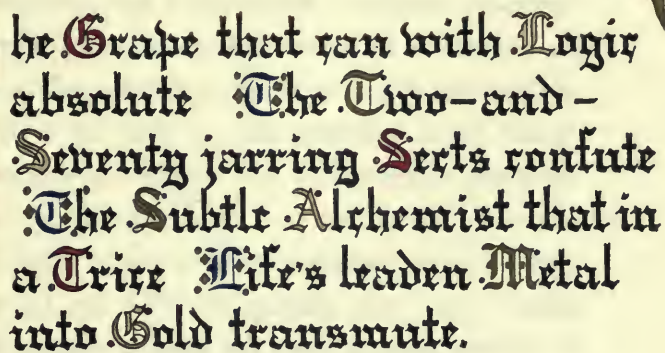 he Grape that can with Logic
absolute The Two-and-
Seventy jarring Sects confute
The Subtle Alchemist that in
a Trice Life's leaden Metal
into Gold transmute.